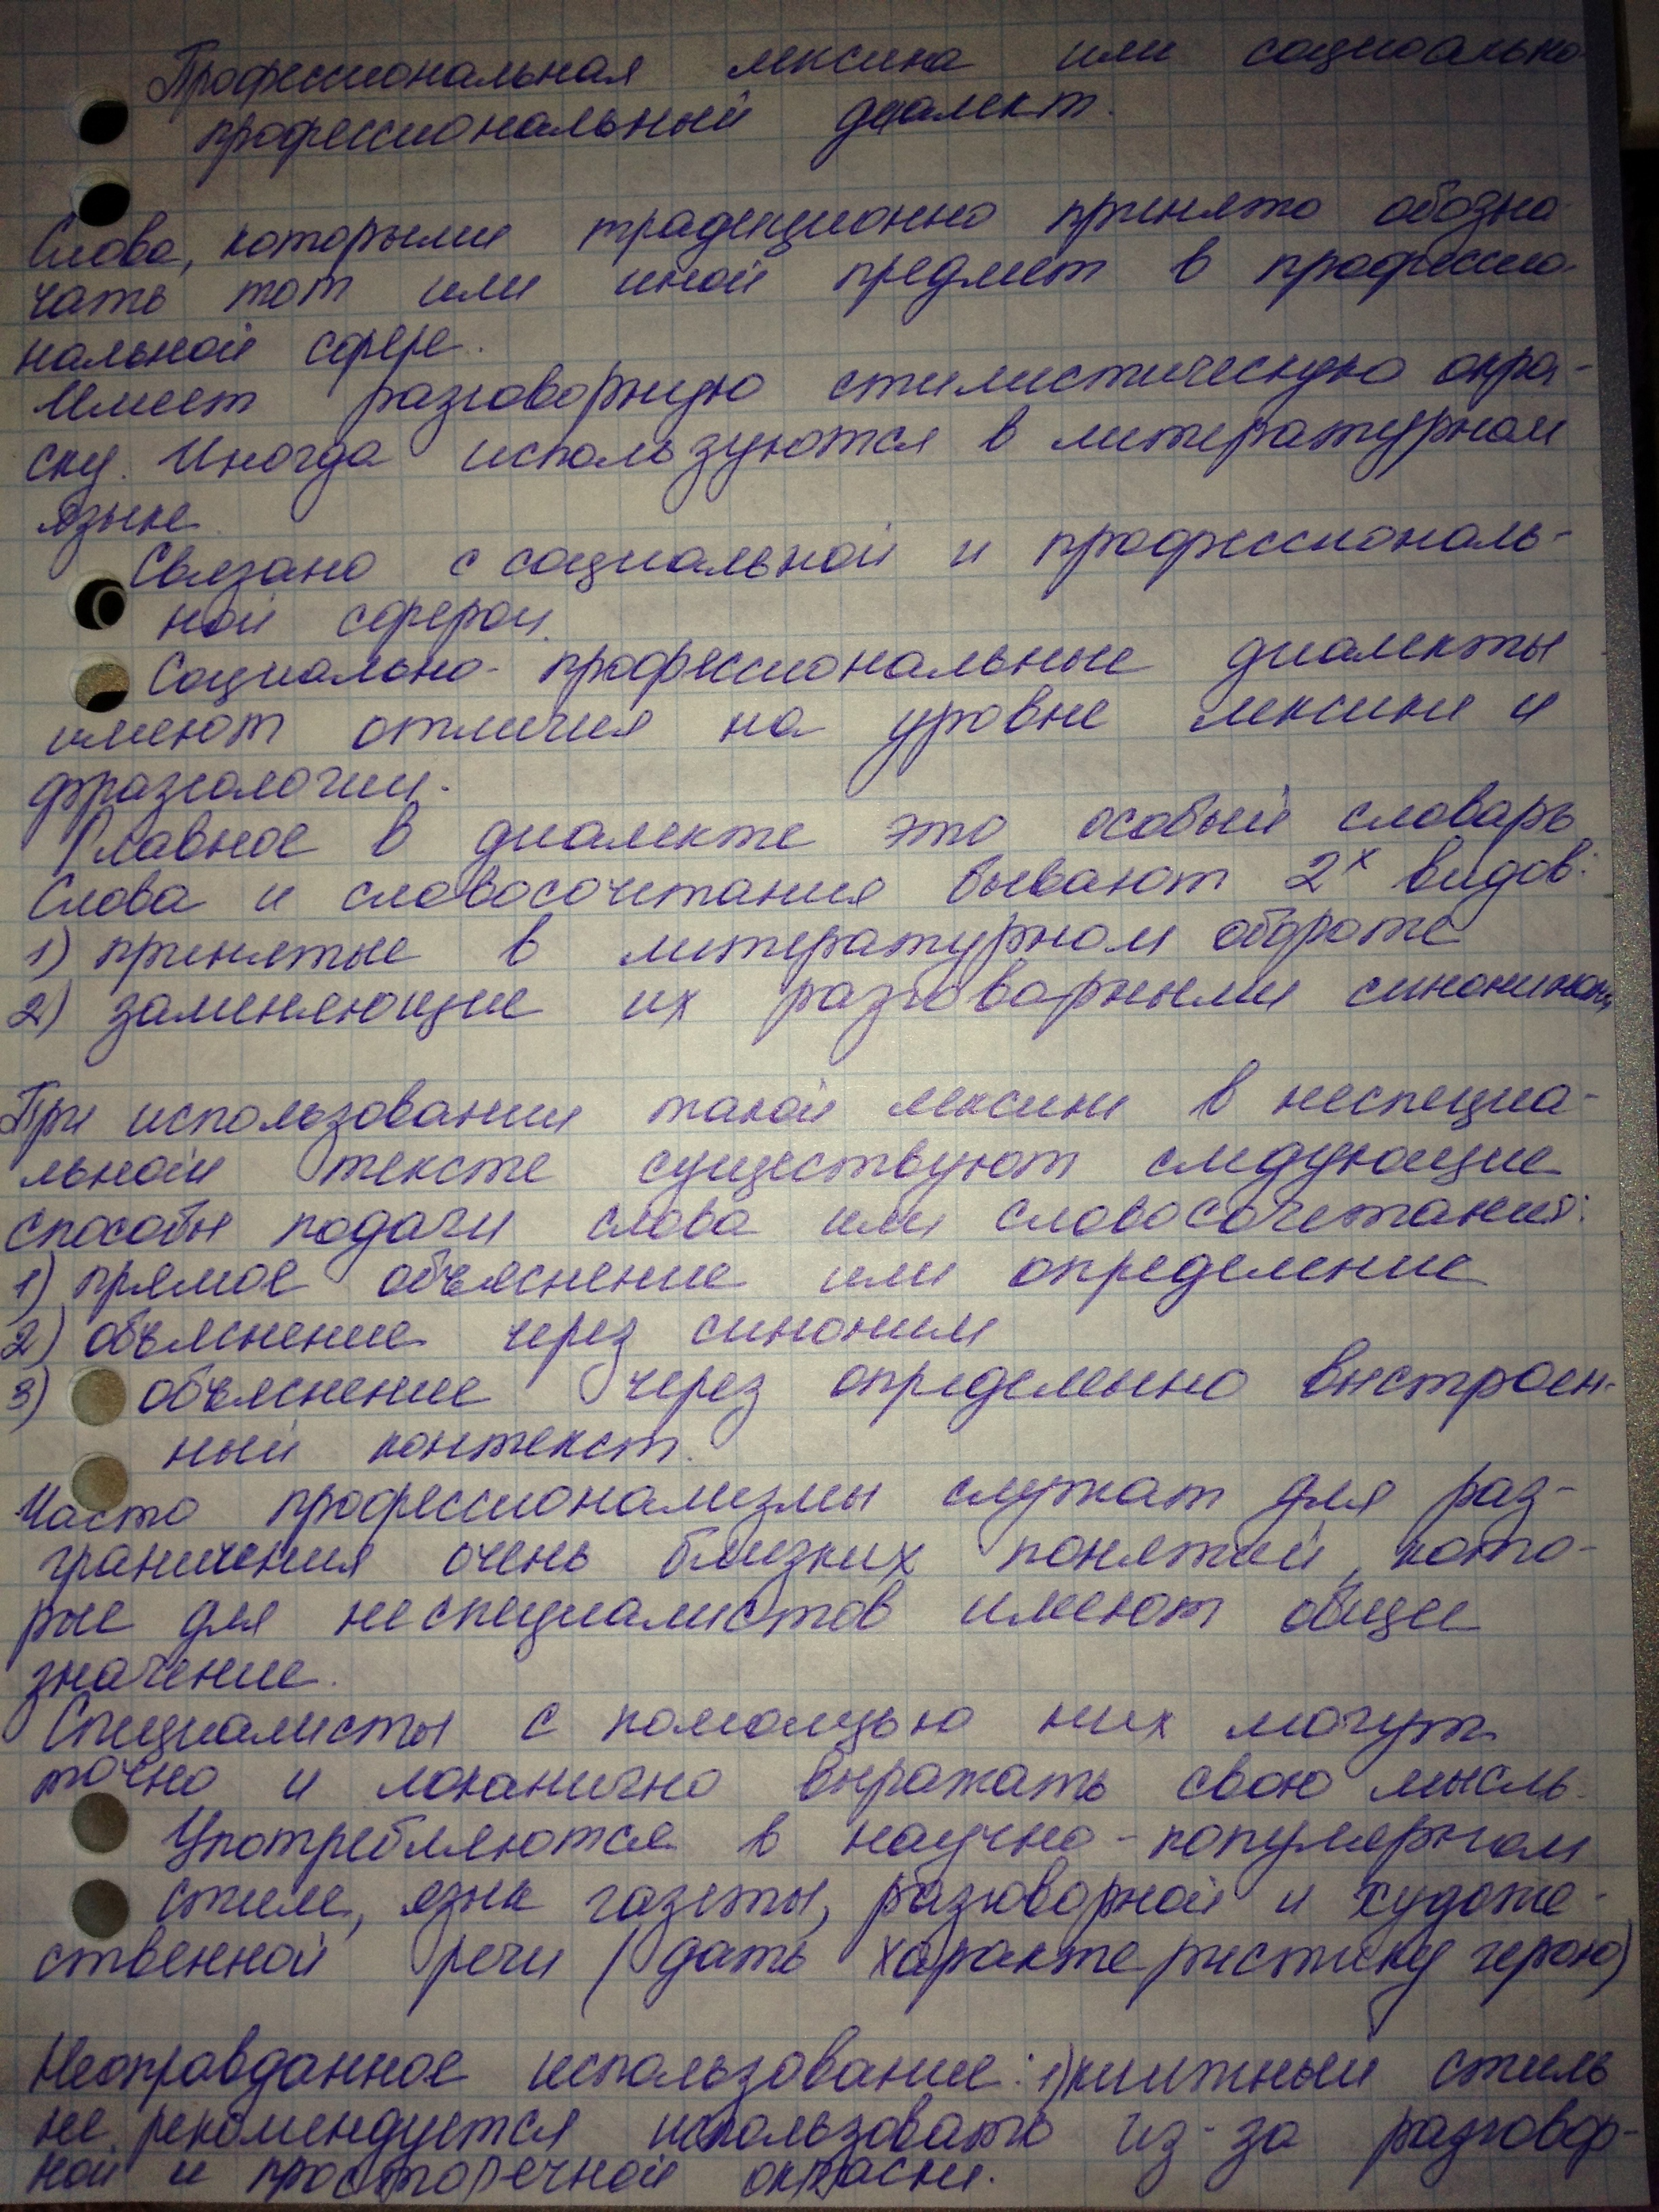 Профессиональная лексика или социально
профессиональный диалект.
Слова, которыми традиционно принято обозна-
чать тот или иной предмет в професси-
нальной сфере.
Имеет разговорную стилистическую окра-
ску. Иногда используются в литературном
языке.
Связано с социальной и профессиональ-
ной сферой.
Социально-профессиональные диалекты
имеют отличия на уровне лексики и
фразеологии.
Главное в диалекте это особый словарь
Слова и словосочетания бывают 2х видов:
1) принятые в литературном обороте
2) заменяющие их разговорными синонимами
При использовании такой лексики в неспециа-
льном тексте существуют следующие
способы подачи слова или словосочетания:
1) прямое объяснение или определение
2) объяснение через синоним
3) объяснение через определенно выстроен-
ный контекст.
Часто профессионализмы служат для раз-
граничения очень близких понятий, кото-
рые для неспециалистов имеют общее
значение.
Специалисты с помощью них могут
точно и локанично выражать свою мысль.
Употребляются в научно-популярном
стиле, язык газеты, разговорной и художе-
ственной речи (дать характеристику герою)
Неоправданное использование: 1) книжный стиль
не рекомендуется использовать из-за разговор-
ной и просторечной окраски.